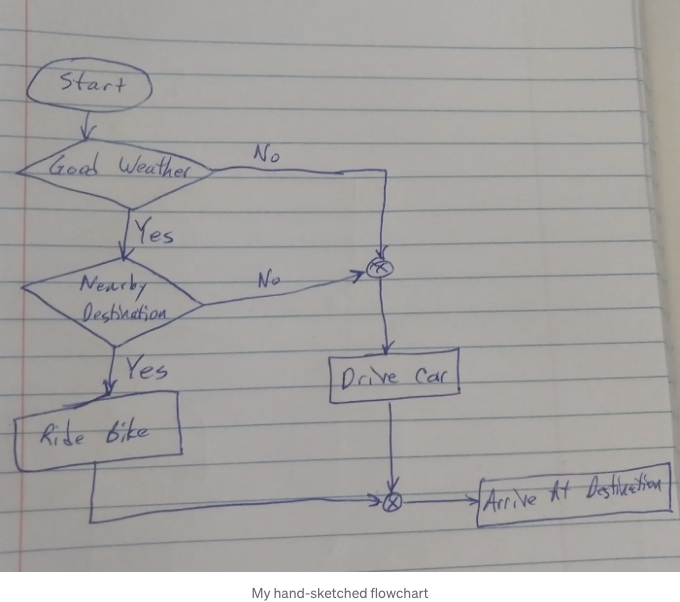 Start
Good Weather
No
Yes
Nearby
Destination
No
Yes
Drive Car
Ride Bike
Arrive At Destination
My hand-sketched flowchart